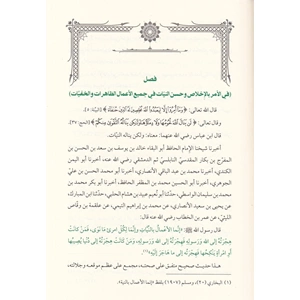 فصل
(في الأمر بالإخلاص وحسن النيّات في جميع الأعمال الظاهرات والخفيّات)
قال الله تعالى: ﴿وَمَا أُمِرُوا إِلَّا لِيَعْبُدُوا اللَّهَ مُخْلِصِينَ لَهُ الدِّينَ حُنَفَاءَ﴾ [البينة: ٥].
وقال تعالى: ﴿لَن يَنَالَ اللَّهَ لُحُومُهَا وَلَا دِمَاؤُهَا وَلَٰكِن يَنَالُهُ التَّقْوَىٰ مِنكُمْ﴾ [الحج: ٣٧].
قال ابن عباس رضي الله عنهما: معناه: ولكن يناله النيات.
أخبرنا شيخنا الإمام الحافظ أبو البقاء خالد بن يوسف بن سعد بن الحسن بن
المفرّج بن بكار المقدسي النابلسي ثم الدمشقي رضي الله عنه، أخبرنا أبو اليمن
الكندي، أخبرنا محمد بن عبد الباقي الأنصاري، أخبرنا أبو محمد الحسن بن علي
الجوهري، أخبرنا أبو الحسين محمد بن المظفر الحافظ، أخبرنا أبو بكر محمد بن
محمد بن سليمان الواسطي، حدّثنا أبو نعيم عبيد بن هشام الحلبي، حدّثنا ابن المبارك،
عن يحيى بن سعيد الأنصاري، عن محمد بن إبراهيم التيمي، عن علقمة بن وقاص
الليثي، عن عمر بن الخطاب رضي الله عنه قال:
قال رسول الله ﷺ: «إنّما الأعمال بالنيّات، وإنّما لكلّ امرئ ما نوى، فمن كانت
هجرته إلى الله ورسوله فهجرته إلى الله ورسوله، ومن كانت هجرته إلى دنيا يصيبها
أو امرأة ينكحها فهجرته إلى ما هاجر إليه».
هذا حديث صحيح متفق على صحته، مجمع على عظم موقعه وجلالته،
(١) البخاري (٢٠)، ومسلم (١٩٠٧) بلفظ «إنما الأعمال بالنية».